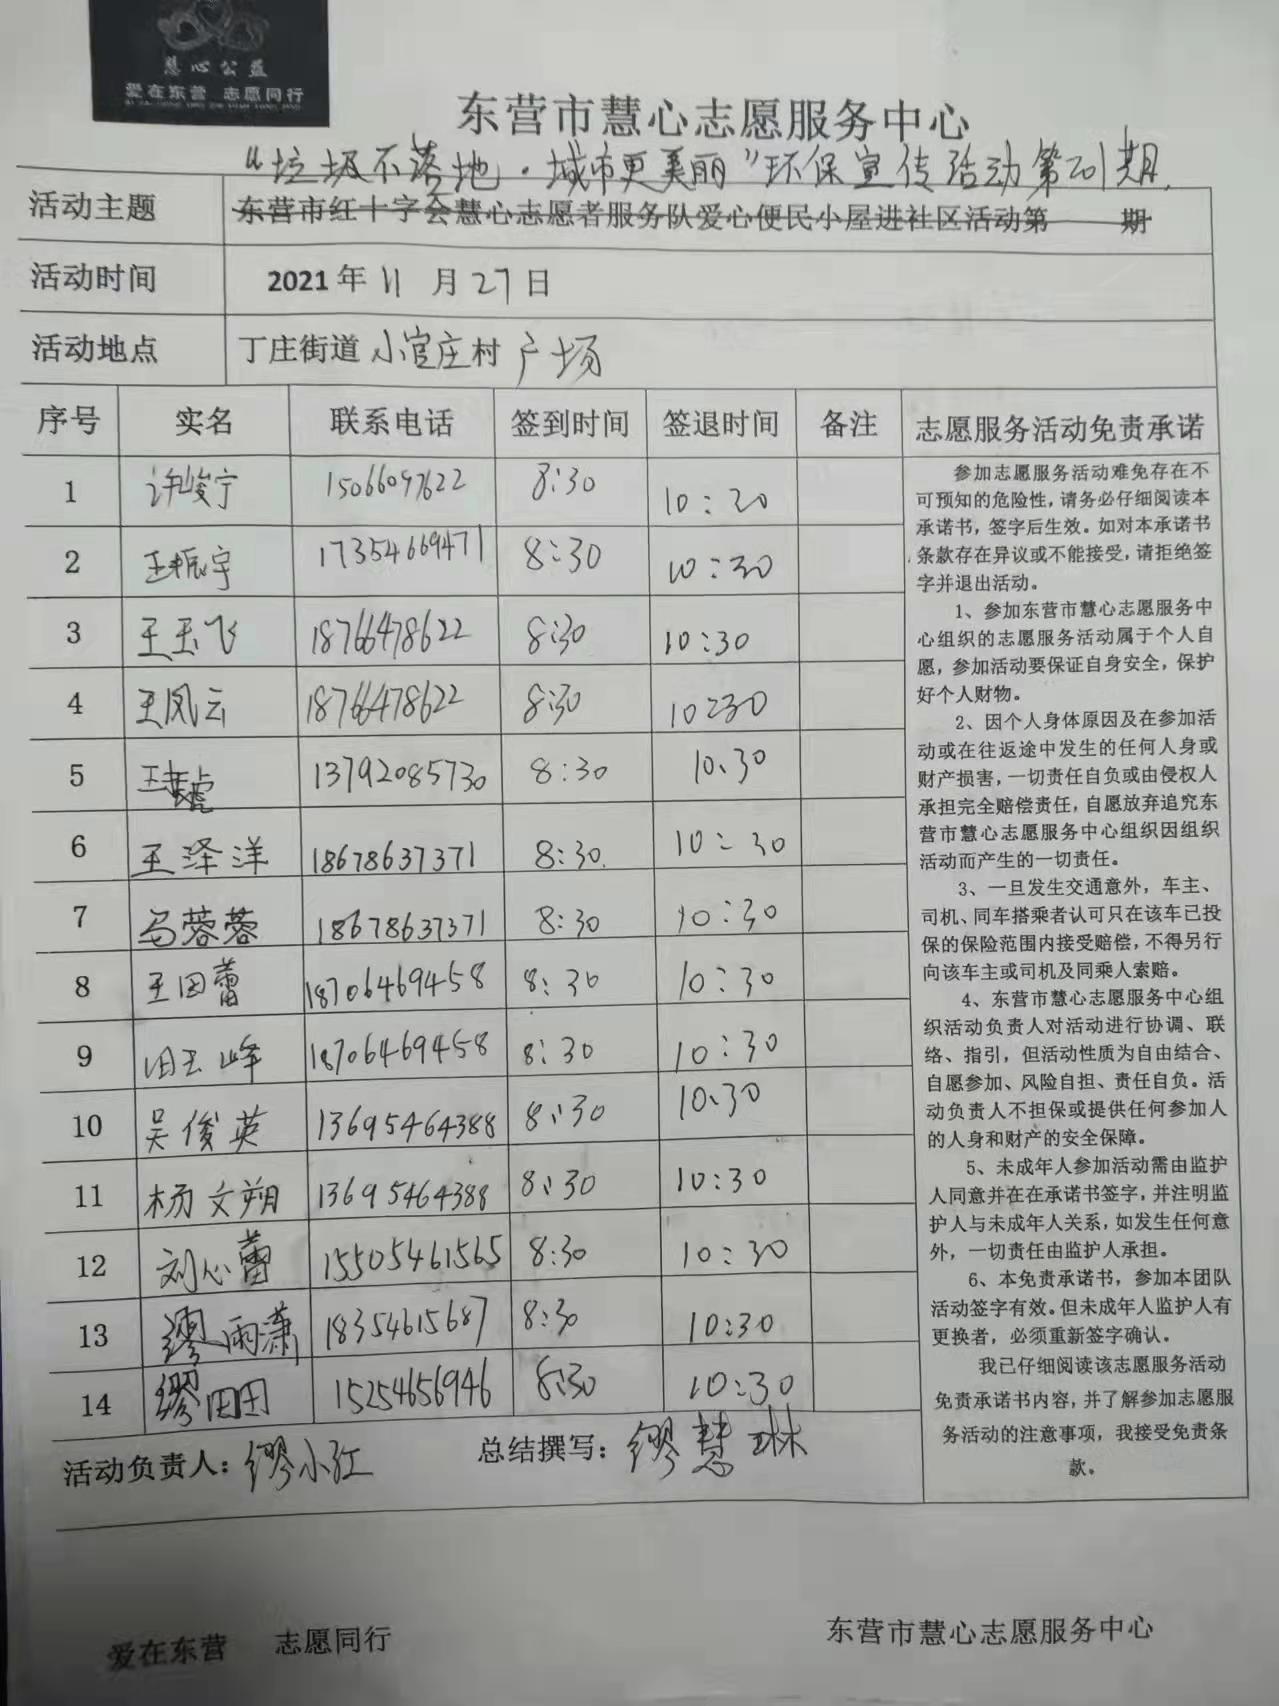 慧心公益
爱在东营 志愿同行
东营市慧心志愿服务中心
“垃圾不落地·城市更美丽”环保宣传活动第201期
活动主题 东营市红十字会慧心志愿者服务队爱心便民小屋进社区活动第 期
活动时间 2021年11月27日
活动地点 丁庄街道小官庄村广场
序号 实名 联系电话 签到时间 签退时间 备注 志愿服务活动免责承诺
1 许峻宁 15066097622 8:30 10:30
2 王振宇 17354669471 8:30 10:30
3 王玉飞 18766478622 8:30 10:30
4 王凤云 18766478622 8:30 10:30
5 13792085730 8:30 10:30
6 王泽洋 18678637371 8:30 10:30
7 马蓉蓉 18678637371 8:30 10:30
8 王田蕾 18706469458 8:30 10:30
9 田玉峰 18706469458 8:30 10:30
10 吴俊英 13695464388 8:30 10:30
11 杨文朔 13695464388 8:30 10:30
12 刘心蕾 15505461565 8:30 10:30
13 缪雨潇 18354615687 8:30 10:30
14 缪田田 15254656946 8:30 10:30
活动负责人:缪小红 总结撰写:缪慧琳
参加志愿服务活动难免存在不
可预知的危险性,请务必仔细阅读本
承诺书,签字后生效。如对本承诺书
条款存在异议或不能接受,请拒绝签
字并退出活动。
1、参加东营市慧心志愿服务中
心组织的志愿服务活动属于个人自
愿,参加活动要保证自身安全,保护
好个人财物。
2、因个人身体原因及在参加活
动或在往返途中发生的任何人身或
财产损害,一切责任自负或由侵权人
承担完全赔偿责任,自愿放弃追究东
营市慧心志愿服务中心组织因组织
活动而产生的一切责任。
3、一旦发生交通意外,车主、
司机、同车搭乘者认可只在该车已投
保的保险范围内接受赔偿,不得另行
向该车主或司机及同乘人索赔。
4、东营市慧心志愿服务中心组
织活动负责人对活动进行协调、联
络、指引,但活动性质为自由结合、
自愿参加、风险自担、责任自负。活
动负责人不担保或提供任何参加人
的人身和财产的安全保障。
5、未成年人参加活动需由监护
人同意并在在承诺书签字,并注明监
护人与未成年人关系,如发生任何意
外,一切责任由监护人承担。
6、本免责承诺书,参加本团队
活动签字有效。但未成年人监护人有
更换者,必须重新签字确认。
我已仔细阅读该志愿服务活动
免责承诺书内容,并了解参加志愿服
务活动的注意事项,我接受免责条
款。
爱在东营 志愿同行 东营市慧心志愿服务中心